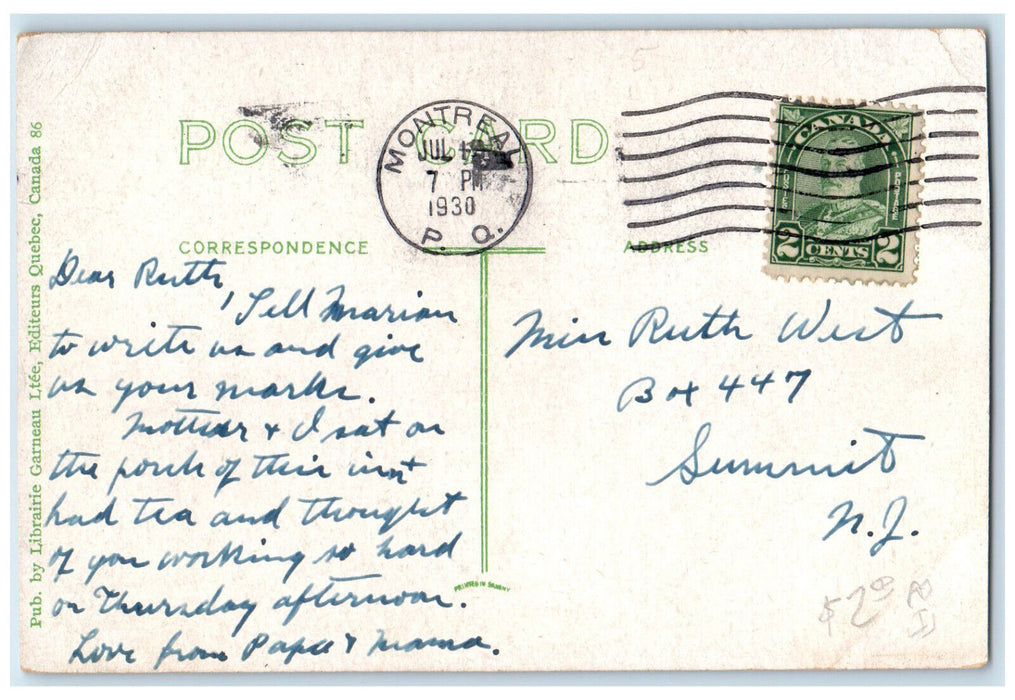 POST CARD
MONTREAL
JUL
7 PM
1930
P. Q.
CANADA
POSTES
POSTAGE
2 CENTS 2
CORRESPONDENCE
ADDRESS
Pub. by Librairie Garneau Ltée, Editeurs Quebec, Canada 86
Dear Ruth,
Tell Marian
to write us and give
us your marks.
Mother + I sat on
the porch of this inn +
had tea and thought
of you working so hard
on Thursday afternoon.
Love from Papa & Mama.
Miss Ruth West
Box 447
Summit
N.J.
PRINTED IN SAXONY
$2